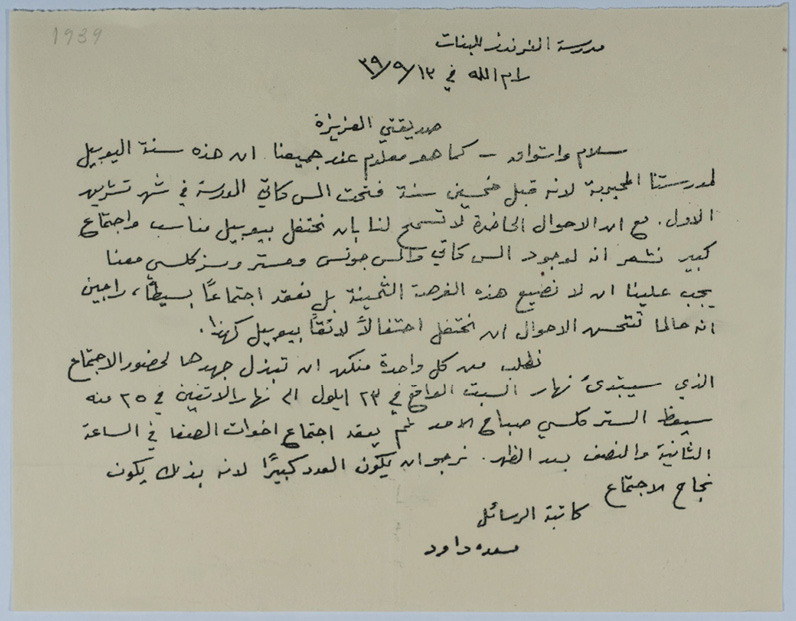 1939
مدرسة الفرندز للبنات
رام الله في ١٢/٩/٣٩
صديقتي العزيزة
سلام واشواق - كما هو معلوم عند جميعنا ان هذه سنة اليوبيل
لمدرستنا المحبوبة لانه قبل خمسين سنة فتحت المس كاتي المدرسة في شهر تشرين
الاول. مع ان الاحوال الحاضرة لا تسمح لنا بان نحتفل بيوبيل مناسب واجتماع
كبير نشعر انه لوجود المس كاتي والمس جونس ومستر ومسز كلسي معنا
يجب علينا ان لا نضيع هذه الفرصة الثمينة بل نعقد اجتماعاً بسيطاً، راجين
انه حالما تتحسن الاحوال ان نحتفل احتفالاً لائقاً بيوبيل كهذا.
نطلب من كل واحدة منكن ان تبذل جهدها لحضور الاجتماع
الذي سيبتدئ نهار السبت الواقع في ٢٣ ايلول الى نهار الاثنين في ٢٥ منه
سيعظ المستر كلسي صباح الاحد ثم يعقد اجتماع اخوات الصفا في الساعة
الثانية والنصف بعد الظهر. نرجو ان يكون العدد كبيرًا لانه بذلك يكون
نجاح الاجتماع
كاتبة الرسائل
سعده داود